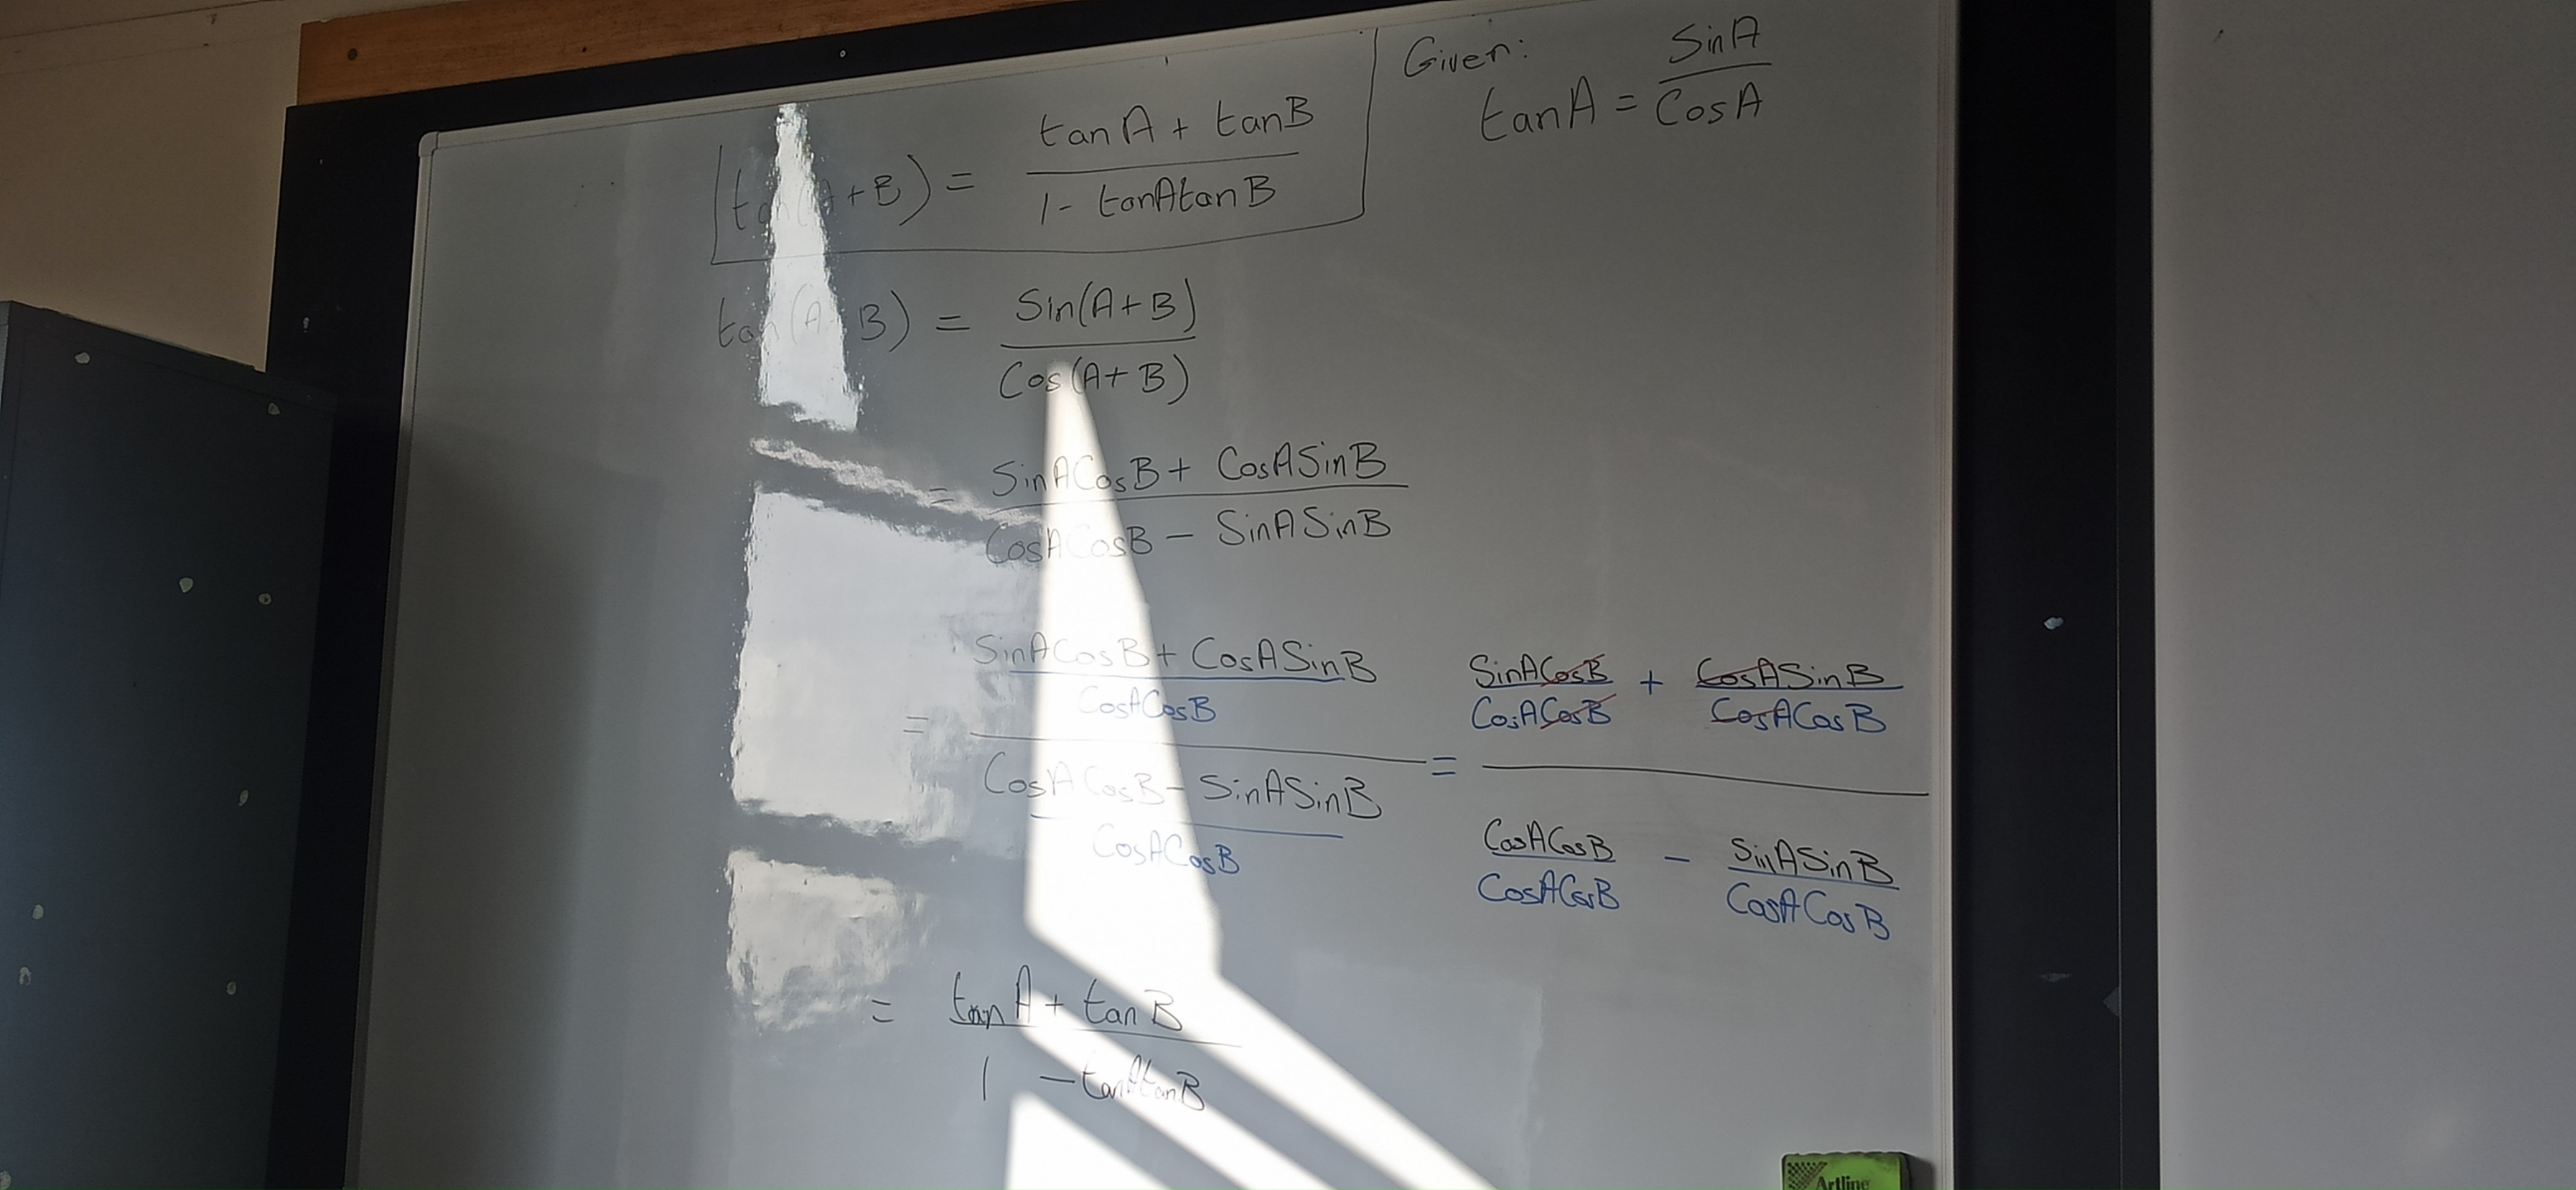 Given:
tan A = Sin A / Cos A
tan(A+B) = tan A + tan B / 1 - tanAtanB
tan(A B) = Sin(A+B) / Cos(A+B)
= SinACosB + CosASinB / CosACosB - SinASinB
= SinACosB + CosASinB / CosACosB / CosACosB - SinASinB / CosACosB = SinACosB / CosACosB + CosASinB / CosACosB / CosACosB / CosACosB - SinASinB / CosACosB
= tan A + tan B / 1 - tanAtanB
Artline